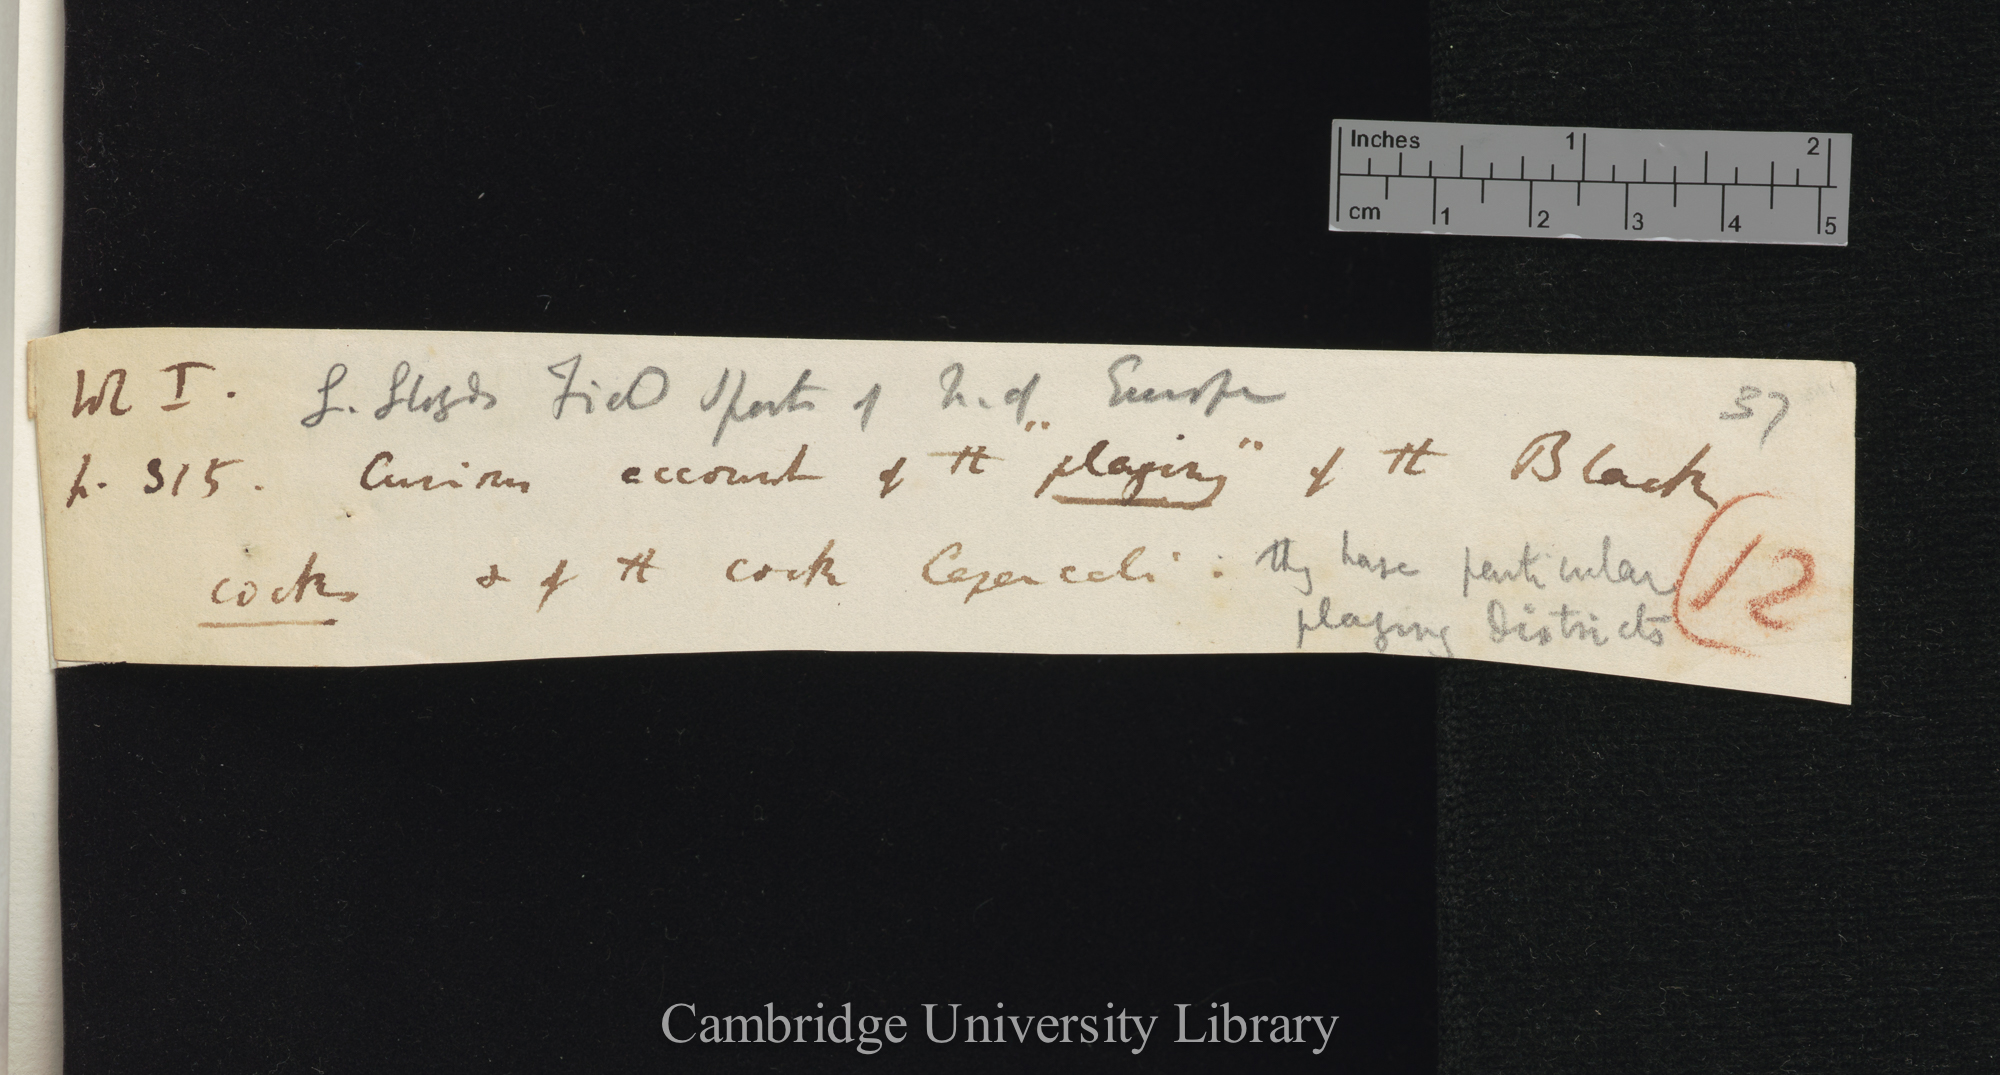 Inches 1 2
cm 1 2 3 4 5
Vol I. L. Lloyds Field Sports of N. of Europe 37
p. 315. Curious account of the "playing" of the Black
cocks & of the cock Capercali : they have particular
playing districts
12
Cambridge University Library